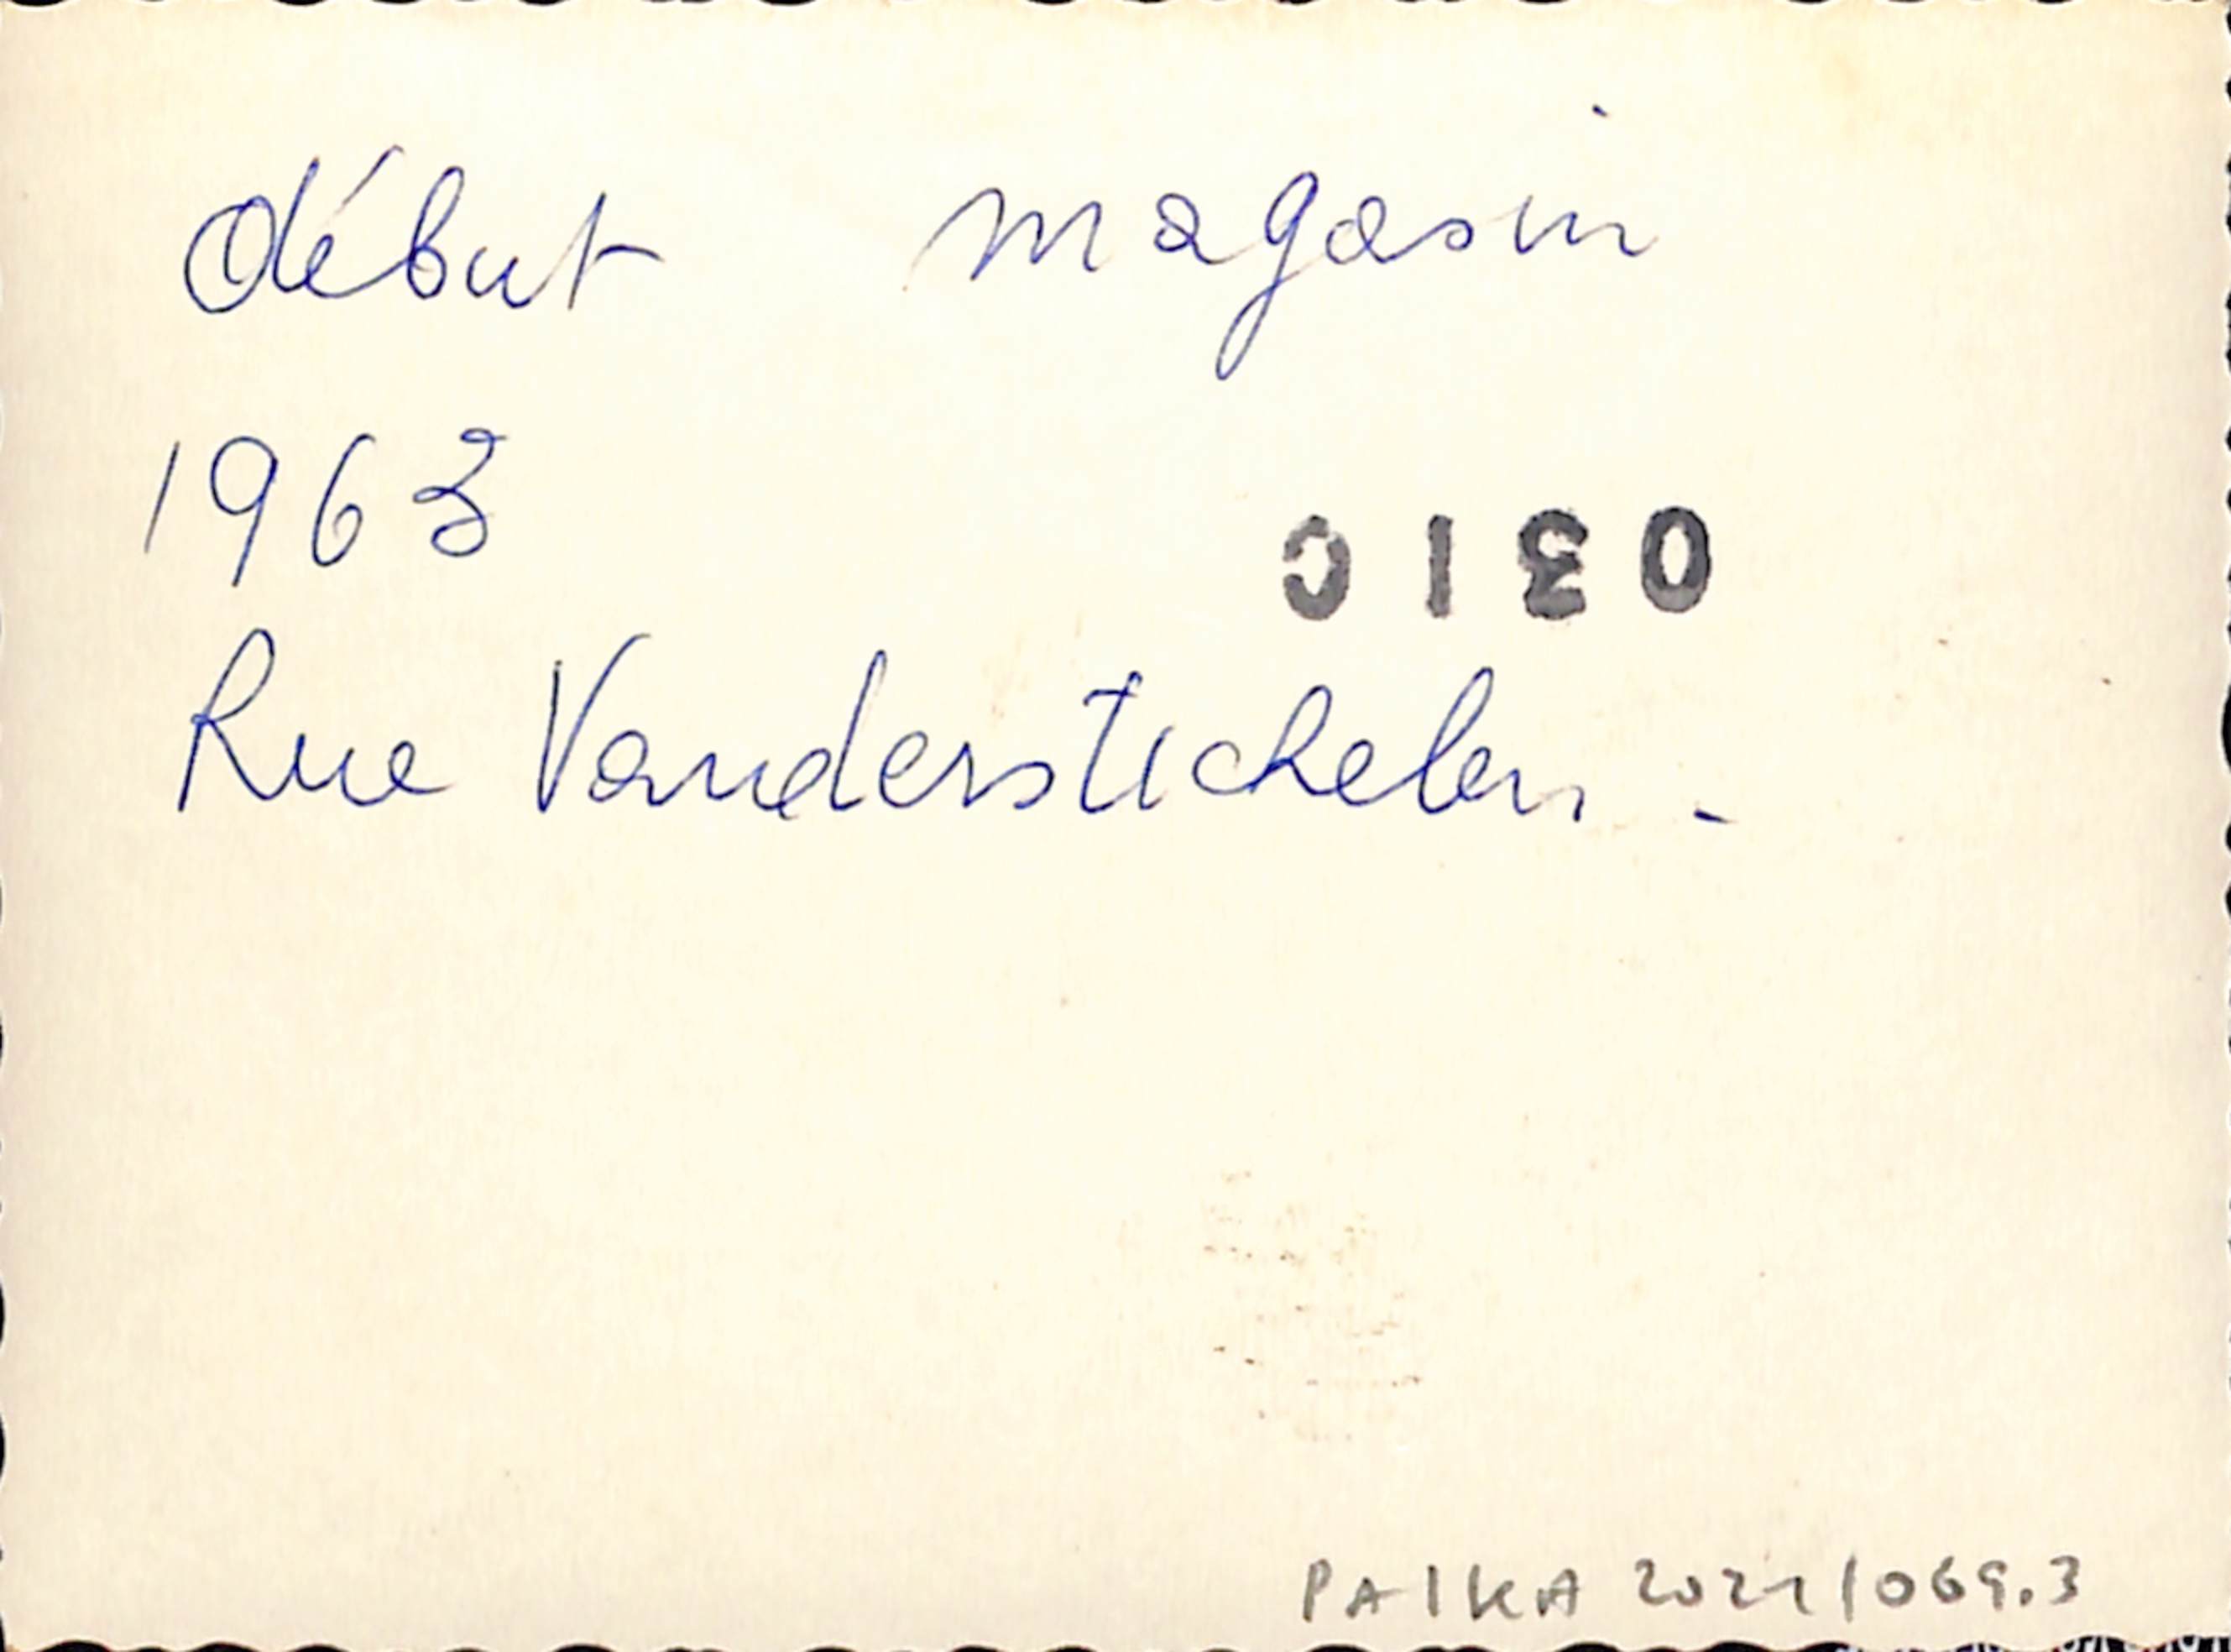 début magasin
1963
0310
Rue Vanderstichelen -
PAIKA 2021/069.3